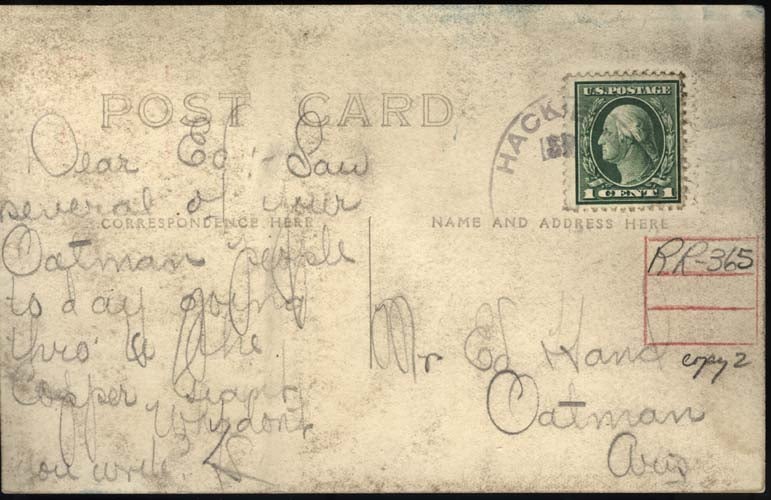 POST CARD
HACK
U.S. POSTAGE
1 CENT 1
CORRESPONDENCE HERE
NAME AND ADDRESS HERE
Dear Ed:- Saw
several of your
Oatman people
to day going
thro
Copper
Why dont
you write?
RR-365
copy 2
Mr Ed Hand
Oatman
Ariz